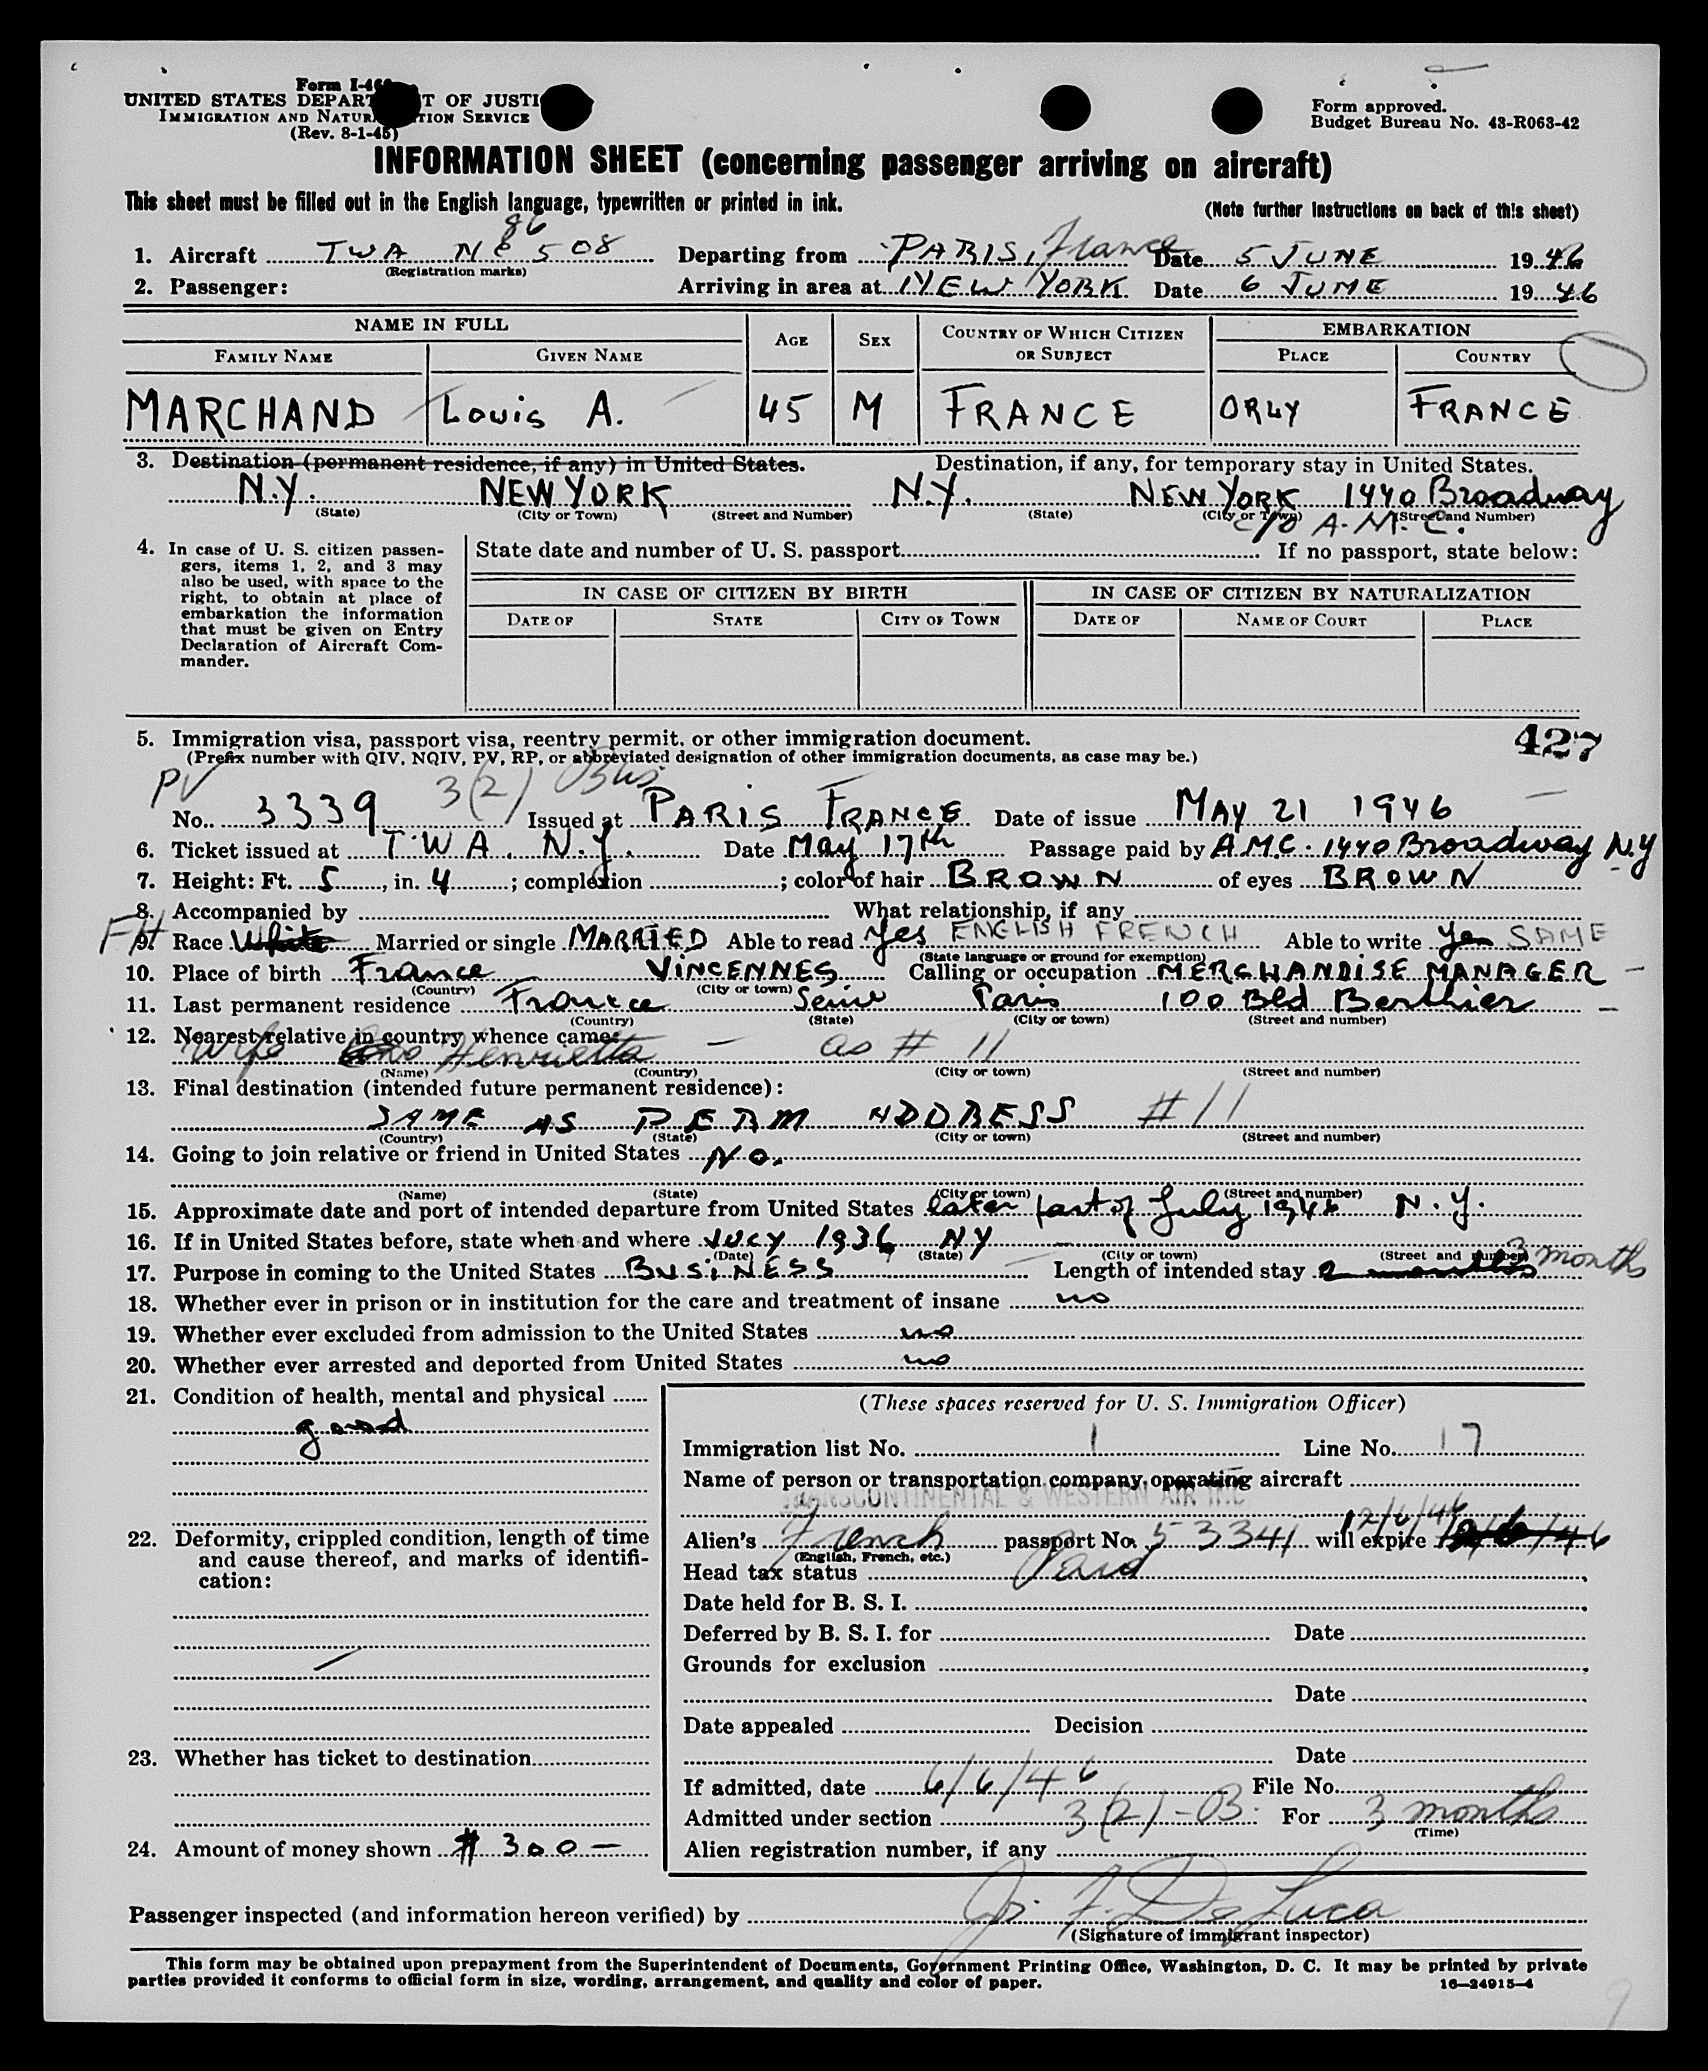 Form I-466
UNITED STATES DEPARTMENT OF JUSTICE
IMMIGRATION AND NATURALIZATION SERVICE
(Rev. 8-1-45)
Form approved.
Budget Bureau No. 43-R063-42
INFORMATION SHEET (concerning passenger arriving on aircraft)
This sheet must be filled out in the English language, typewritten or printed in ink.
(Note further instructions on back of this sheet)
86
1. Aircraft TWA NC 508 Departing from PARIS, France Date 5 JUNE 1946
(Registration marks)
2. Passenger: Arriving in area at NEW YORK Date 6 JUNE 1946
NAME IN FULL AGE SEX COUNTRY OF WHICH CITIZEN OR SUBJECT EMBARKATION
FAMILY NAME GIVEN NAME PLACE COUNTRY
MARCHAND Louis A. 45 M FRANCE ORLY FRANCE
3. Destination (permanent residence, if any) in United States. Destination, if any, for temporary stay in United States.
N.Y. NEW YORK N.Y. NEW YORK 1440 Broadway
(State) (City or Town) (Street and Number) (State) (City or Town) (Street and Number)
c/o A.M.C.
4. In case of U. S. citizen passengers, items 1, 2, and 3 may also be used, with space to the right, to obtain at place of embarkation the information that must be given on Entry Declaration of Aircraft Commander.
State date and number of U. S. passport If no passport, state below:
IN CASE OF CITIZEN BY BIRTH IN CASE OF CITIZEN BY NATURALIZATION
DATE OF STATE CITY OR TOWN DATE OF NAME OF COURT PLACE
427
5. Immigration visa, passport visa, reentry permit, or other immigration document.
(Prefix number with QIV, NQIV, PV, RP, or abbreviated designation of other immigration documents, as case may be.)
PV 3(2) Bus
No. 3339 Issued at PARIS FRANCE Date of issue MAY 21 1946
6. Ticket issued at T.W.A. N.Y. Date May 17th Passage paid by A.M.C. 1440 Broadway N.Y
7. Height: Ft. 5, in. 4; complexion ; color of hair BROWN of eyes BROWN
8. Accompanied by What relationship, if any
FH
9. Race White Married or single MARRIED Able to read Yes ENGLISH FRENCH Able to write Yes SAME
(State language or ground for exemption)
10. Place of birth France VINCENNES Calling or occupation MERCHANDISE MANAGER
(Country) (City or town)
11. Last permanent residence France Seine Paris 100 Bld Berthier
(Country) (State) (City or town) (Street and number)
12. Nearest relative in country whence came:
Wife Henrietta - as # 11
(Name) (Country) (City or town) (Street and number)
13. Final destination (intended future permanent residence):
SAME AS PERM ADDRESS #11
(Country) (State) (City or town) (Street and number)
14. Going to join relative or friend in United States No.
(Name) (State) (City or town) (Street and number)
15. Approximate date and port of intended departure from United States later part of July 1946 N.Y.
16. If in United States before, state when and where JULY 1936 NY
(Date) (State) (City or town) (Street and number)
17. Purpose in coming to the United States BUSINESS Length of intended stay 2 months 3 months
18. Whether ever in prison or in institution for the care and treatment of insane no
19. Whether ever excluded from admission to the United States no
20. Whether ever arrested and deported from United States no
21. Condition of health, mental and physical
good
(These spaces reserved for U. S. Immigration Officer)
Immigration list No. 1 Line No. 17
Name of person or transportation company operating aircraft
TRANSCONTINENTAL & WESTERN AIR INC
22. Deformity, crippled condition, length of time and cause thereof, and marks of identification:
12/6/46
Alien's French passport No. 53341 will expire
(English, French, etc.)
Head tax status Paid
Date held for B. S. I.
Deferred by B. S. I. for Date
Grounds for exclusion
Date
Date appealed Decision
23. Whether has ticket to destination
Date
If admitted, date 6/6/46 File No.
Admitted under section 3(2)-03 For 3 months
(Time)
24. Amount of money shown $ 300 -
Alien registration number, if any
Passenger inspected (and information hereon verified) by F. De Luca
(Signature of immigrant inspector)
This form may be obtained upon prepayment from the Superintendent of Documents, Government Printing Office, Washington, D. C. It may be printed by private
parties provided it conforms to official form in size, wording, arrangement, and quality and color of paper.
16—24915-4
9